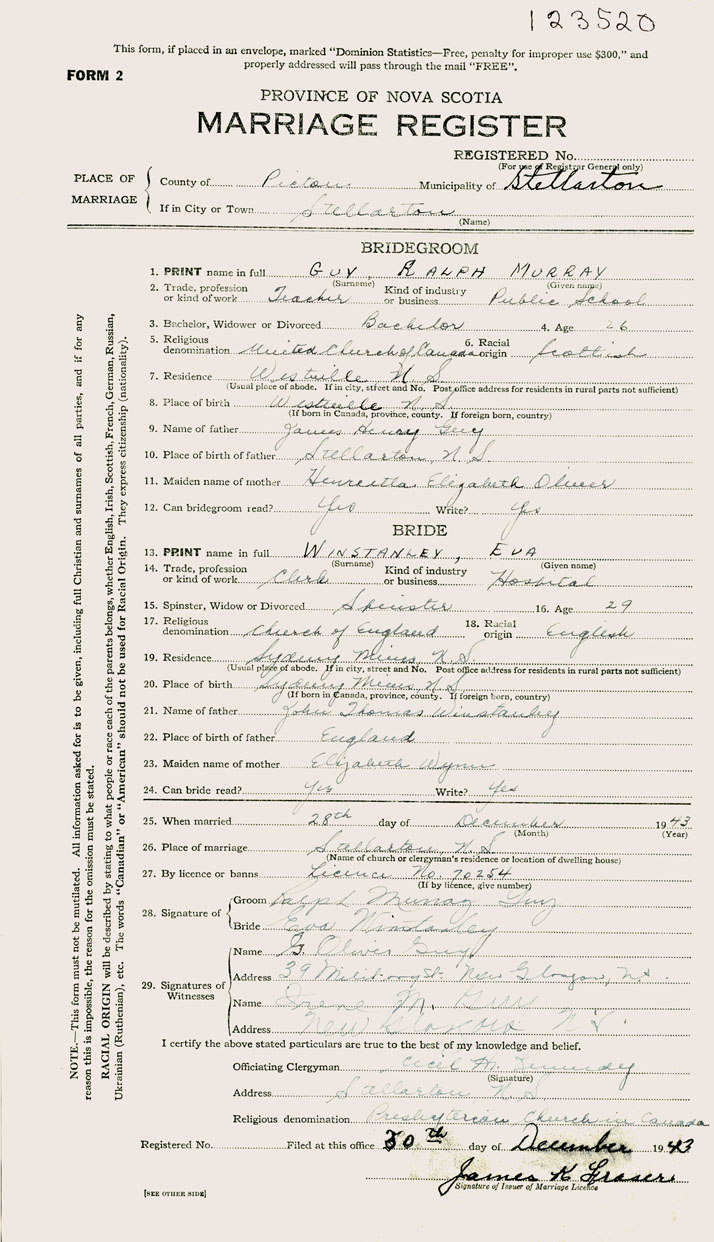 123520
This form, if placed in an envelope, marked "Dominion Statistics—Free, penalty for improper use $300," and
properly addressed will pass through the mail "FREE".
FORM 2
PROVINCE OF NOVA SCOTIA
MARRIAGE REGISTER
REGISTERED No.
(For use of Registrar General only)
PLACE OF MARRIAGE
County of Pictou Municipality of Stellarton
If in City or Town Stellarton
(Name)
BRIDEGROOM
1. PRINT name in full GUY, RALPH MURRAY
(Surname) (Given name)
2. Trade, profession or kind of work Teacher Kind of industry or business Public School
3. Bachelor, Widower or Divorced Bachelor 4. Age 26
5. Religious denomination United Church of Canada 6. Racial origin Scottish
7. Residence Westville N.S.
(Usual place of abode. If in city, street and No. Post office address for residents in rural parts not sufficient)
8. Place of birth Westville N.S.
(If born in Canada, province, county. If foreign born, country)
9. Name of father James Henry Guy
10. Place of birth of father Stellarton, N.S
11. Maiden name of mother Henrietta Elizabeth Oliver
12. Can bridegroom read? Yes Write? Yes
BRIDE
13. PRINT name in full WINSTANLEY, EVA
(Surname) (Given name)
14. Trade, profession or kind of work Clerk Kind of industry or business Hospital
15. Spinster, Widow or Divorced Spinster 16. Age 29
17. Religious denomination Church of England 18. Racial origin English
19. Residence Sydney Mines, N.S
(Usual place of abode. If in city, street and No. Post office address for residents in rural parts not sufficient)
20. Place of birth Sydney Mines, N.S
(If born in Canada, province, county. If foreign born, country)
21. Name of father John Thomas Winstanley
22. Place of birth of father England
23. Maiden name of mother Elizabeth Wynn
24. Can bride read? Yes Write? Yes
25. When married 28th day of December 1943
(Month) (Year)
26. Place of marriage Stellarton, N.S.
(Name of church or clergyman's residence or location of dwelling house)
27. By licence or banns Licence No. 70254
(If by licence, give number)
28. Signature of
Groom Ralph Murray Guy
Bride Eva Winstanley
29. Signatures of Witnesses
Name G. Oliver Guy
Address 39 Military St. New Glasgow, N.S.
Name Irene M.
Address New Glasgow N.S.
I certify the above stated particulars are true to the best of my knowledge and belief.
Officiating Clergyman Cecil H. Kennedy
(Signature)
Address Stellarton N.S
Religious denomination Presbyterian Church in Canada
Registered No. Filed at this office 30th day of December 1943
James K Fraser
Signature of Issuer of Marriage Licence
[SEE OTHER SIDE]
NOTE.—This form must not be mutilated. All information asked for is to be given, including full Christian and surnames of all parties, and if for any
reason this is impossible, the reason for the omission must be stated.
RACIAL ORIGIN will be described by stating to what people or race each of the parents belongs, whether English, Irish, Scottish, French, German, Russian,
Ukrainian (Ruthenian), etc. The words "Canadian" or "American" should not be used for Racial Origin. They express citizenship (nationality).